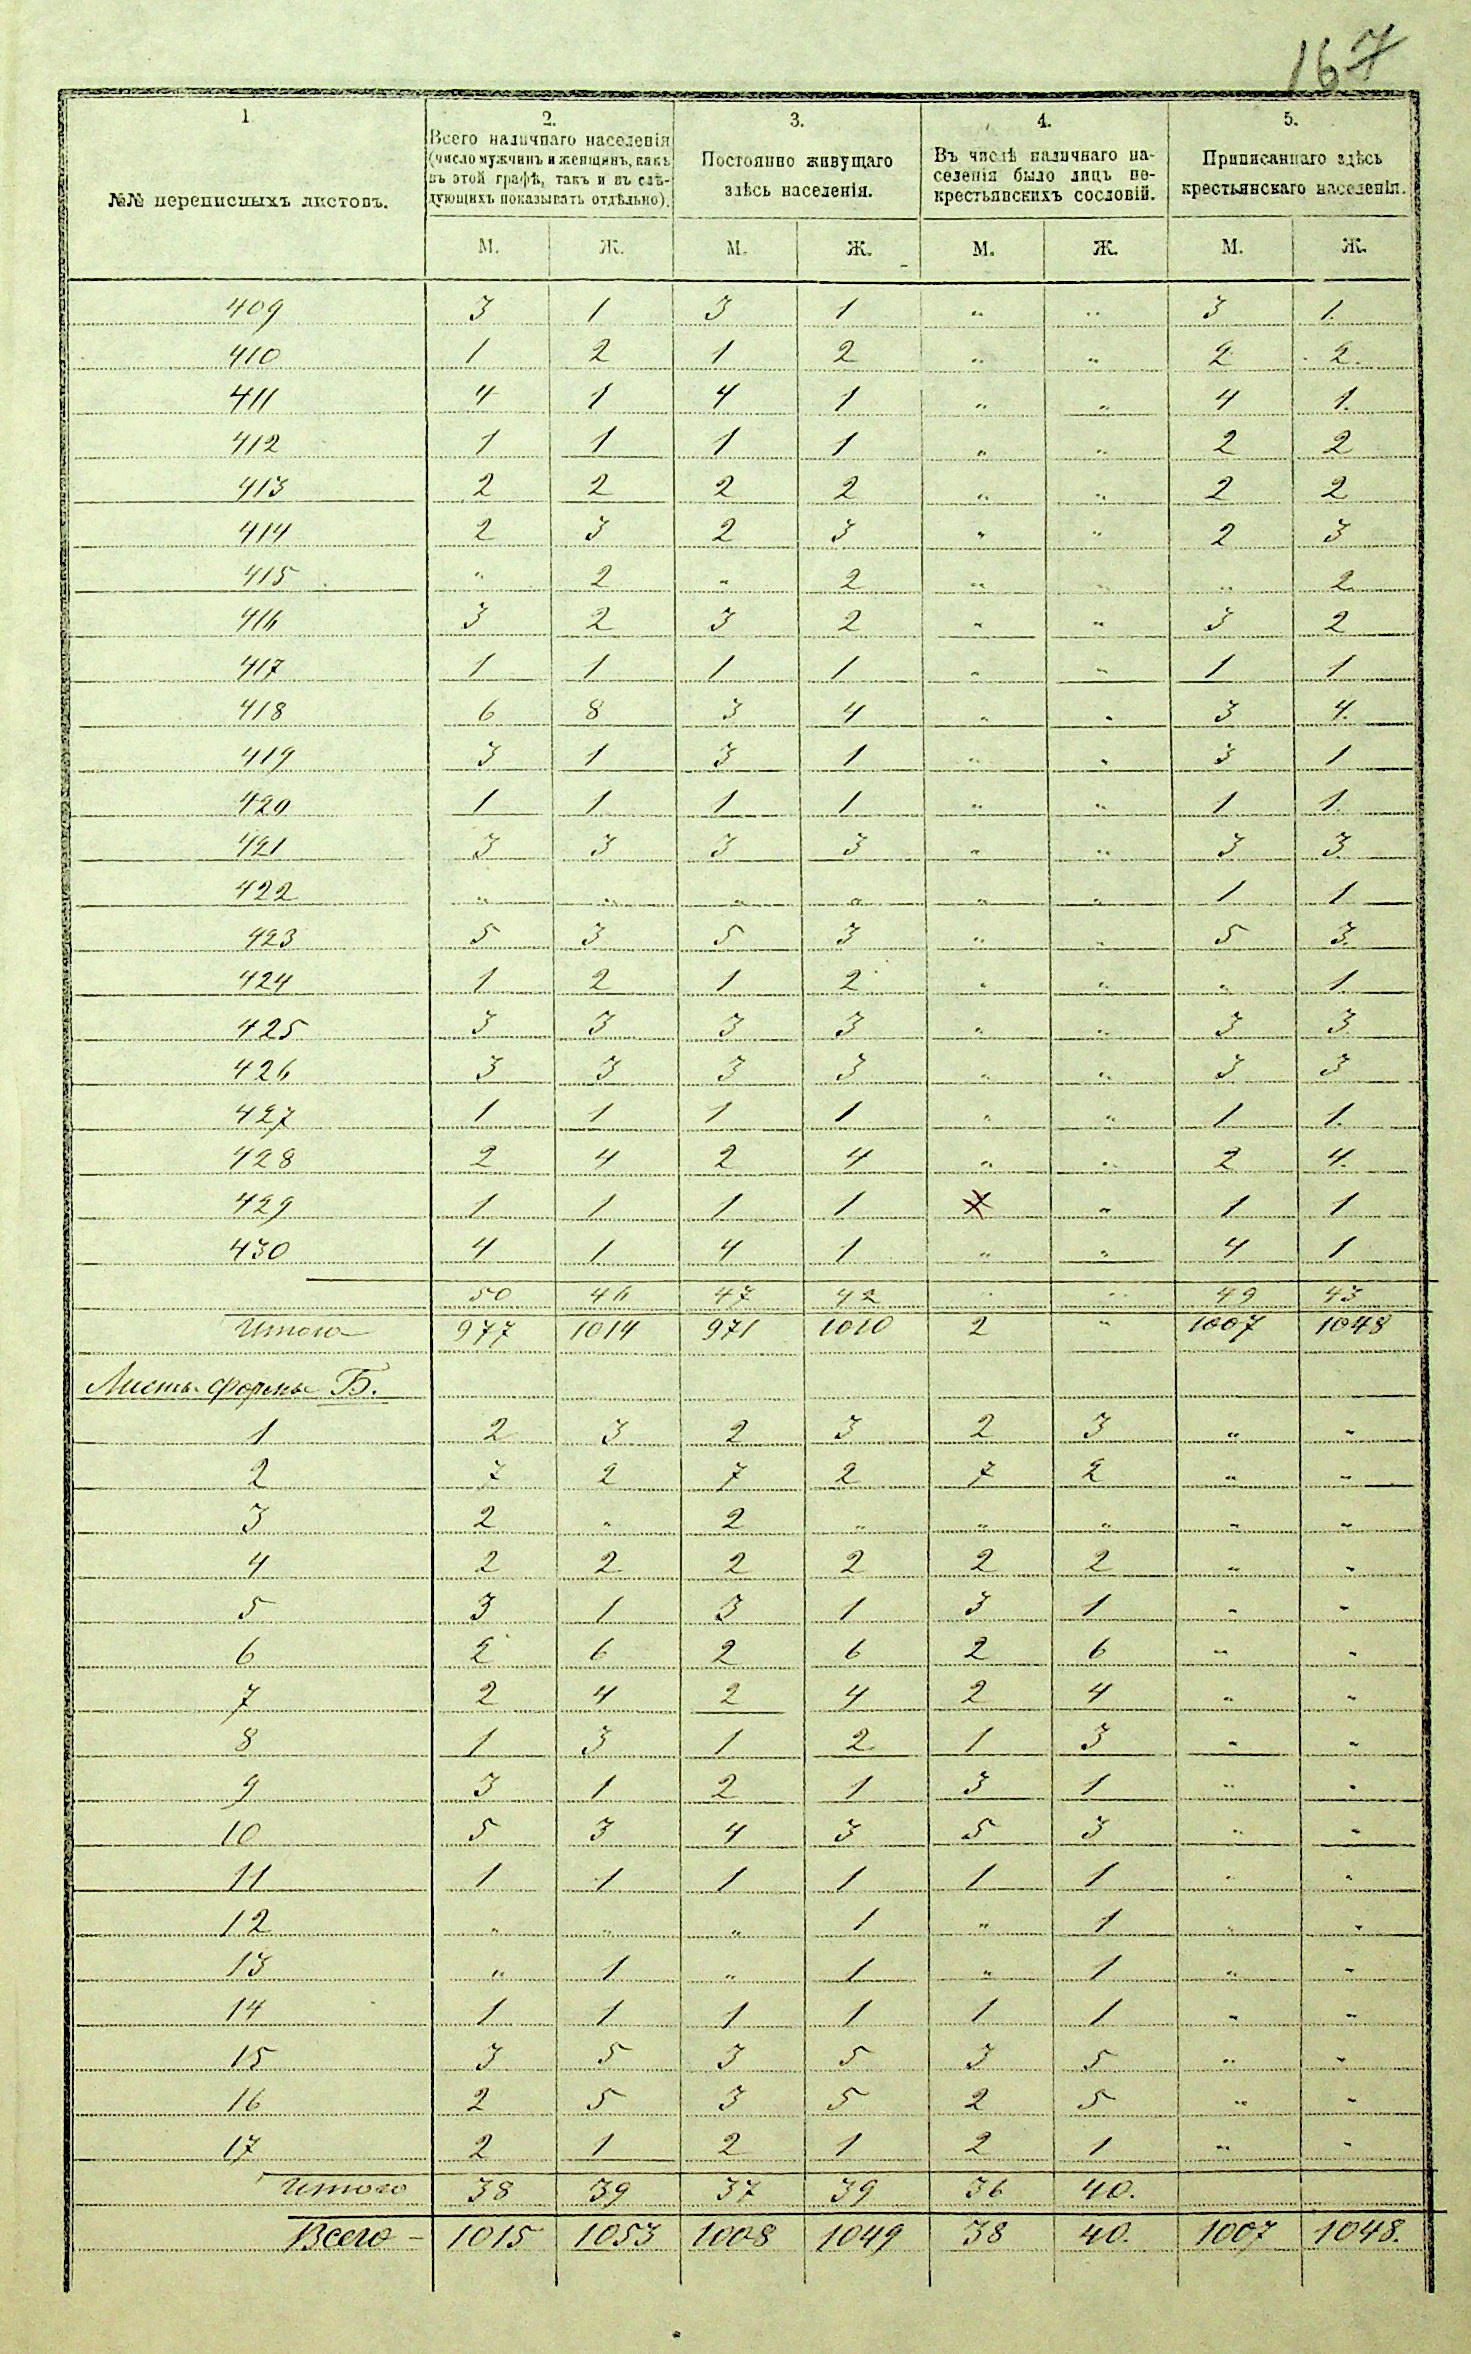 167
1 2. 3. 4. 5.
№№ переписныхъ листовъ.
Всего наличнаго населенія (число мужчинъ и женщинъ, какъ въ этой графѣ, такъ и въ слѣдующихъ показывать отдѣльно).
Постоянно живущаго здѣсь населенія.
Въ числѣ наличнаго населенія было лицъ некрестьянскихъ сословій.
Приписаннаго здѣсь крестьянскаго населенія.
М. Ж. М. Ж. М. Ж. М. Ж.
409 3 1 3 1 " " 3 1.
410 1 2 1 2 " " 2 2.
411 4 1 4 1 " " 4 1.
412 1 1 1 1 " " 2 2
413 2 2 2 2 " " 2 2
414 2 3 2 3 " " 2 3
415 " 2 " 2 " " " 2
416 3 2 3 2 " " 3 2
417 1 1 1 1 " " 1 1
418 6 8 3 4 " " 3 4.
419 3 1 3 1 " " 3 1
420 1 1 1 1 " " 1 1.
421 3 3 3 3 " " 3 3.
422 " " " " " " 1 1
423 5 3 5 3 " " 5 3.
424 1 2 1 2 " " " 1
425 3 3 3 3 " " 3 3
426 3 3 3 3 " " 3 3
427 1 1 1 1 " " 1 1.
428 2 4 2 4 " " 2 4.
429 1 1 1 1 " 1 1
430 4 1 4 1 " " 4 1
50 46 47 42 " " 49 43
Итого 977 1014 971 1010 2 " 1007 1048
Листы формы Б.
1 2 3 2 3 2 3 " "
2 7 2 7 2 7 2 " "
3 2 " 2 " " " " "
4 2 2 2 2 2 2 " "
5 3 1 3 1 3 1 " "
6 2 6 2 6 2 6 " "
7 2 4 2 4 2 4 " "
8 1 3 1 2 1 3 " "
9 3 1 2 1 3 1 " "
10 5 3 4 3 5 3 " "
11 1 1 1 1 1 1 " "
12 " " " 1 " 1 " "
13 " 1 " 1 " 1 " "
14 1 1 1 1 1 1 " "
15 3 5 3 5 3 5 " "
16 2 5 3 5 2 5 " "
17 2 1 2 1 2 1 " "
Итого 38 39 37 39 36 40.
Всего – 1015 1053 1008 1049 38 40. 1007 1048.